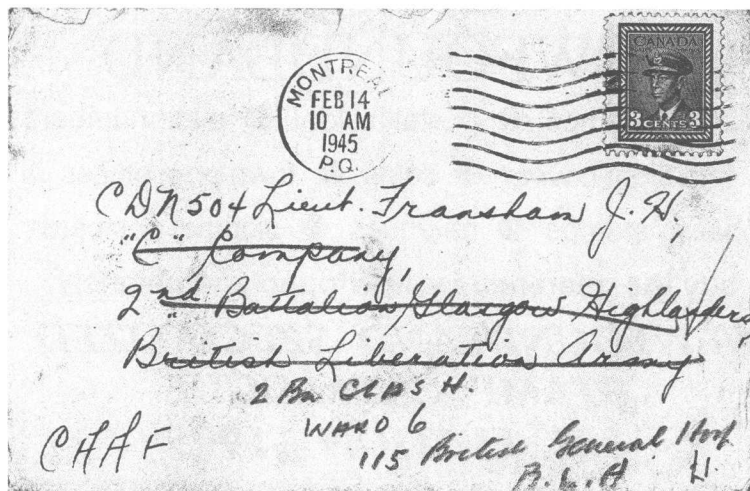 MONTREAL
FEB 14
10 AM
1945
P.Q.
CANADA
3 CENTS 3
CDN 504 Lieut. Fransham J. H.,
"C" Company,
2nd Battalion Glasgow Highlanders,
British Liberation Army
2 Bn GLAS H.
WARD 6
115 British General Hosp
B. L. A